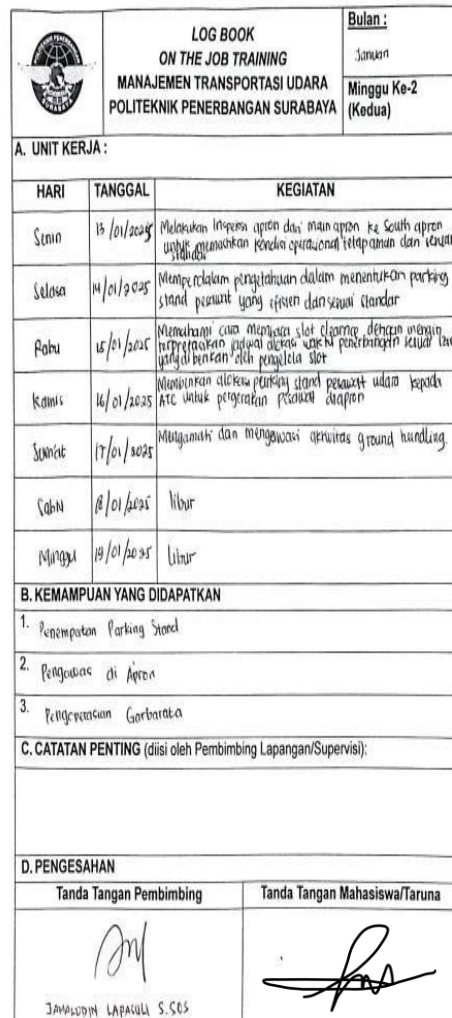 LOG BOOK
ON THE JOB TRAINING
MANAJEMEN TRANSPORTASI UDARA
POLITEKNIK PENERBANGAN SURABAYA
Bulan :
Januari
Minggu Ke-2
(Kedua)
A. UNIT KERJA :
HARI TANGGAL KEGIATAN
Senin 13/01/2025 Melakukan Inspeksi apron dari main apron ke South apron
untuk memastikan kondisi operasional tetap aman dan sesuai
standar
Selasa 14/01/2025 Memperdalam pengetahuan dalam menentukan parking
stand pesawat yang efisien dan sesuai standar
Rabu 15/01/2025 Memahami cara membaca slot clearance dengan mengin
terpretasikan jadwal alokasi waktu penerbangan sesuai izin
yang diberikan oleh pengelola slot
Kamis 16/01/2025 Memberikan alokasi parking stand pesawat udara kepada
ATC untuk pergerakan pesawat diapron
Jum'at 17/01/2025 Mengamati dan mengawasi aktivitas ground handling.
Sabtu 18/01/2025 libur
Minggu 19/01/2025 Libur
B. KEMAMPUAN YANG DIDAPATKAN
1. Penempatan Parking Stand
2. Pengawas di Apron
3. Pengoperasian Garbarata
C. CATATAN PENTING (diisi oleh Pembimbing Lapangan/Supervisi):
D. PENGESAHAN
Tanda Tangan Pembimbing Tanda Tangan Mahasiswa/Taruna
JAMALUDIN LAPASULI S.SOS